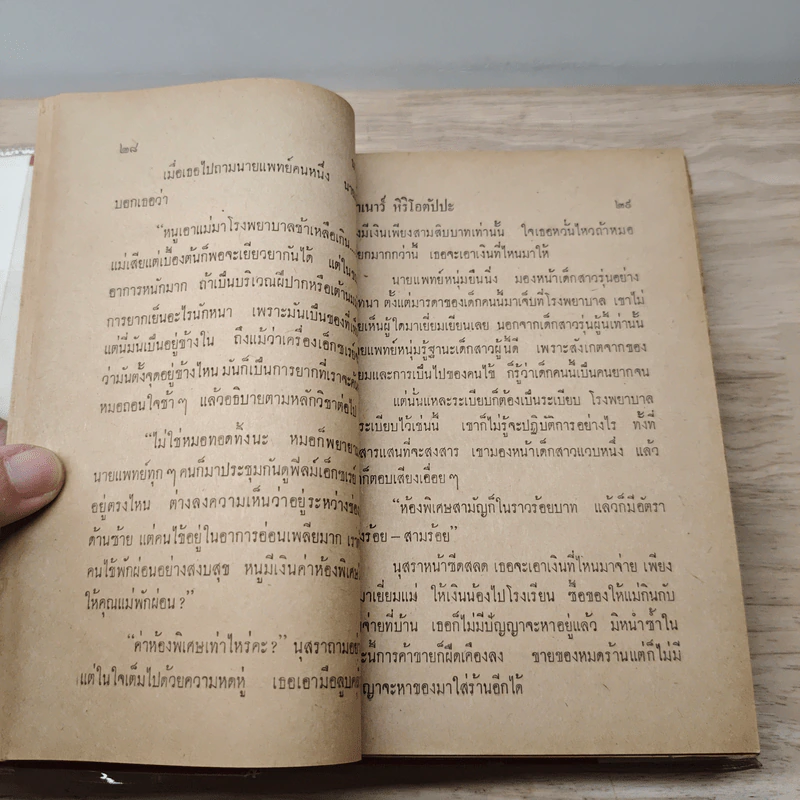 ๒๘
เมื่อเธอไปถามนายแพทย์คนหนึ่ง
บอกเธอว่า
“หนูเอาแม่มาโรงพยาบาลช้าเหลือเกิน
แม่เสียแต่เบื้องต้นก็พอจะเยียวยากันได้ แต่ใน
อาการหนักมาก ถ้าเป็นบริเวณฝีปากหรือเต้านม
การยากเย็นอะไรนักหนา เพราะมันเป็นของที่
แต่นี่มันเป็นอยู่ข้างใน ถึงแม้ว่าเครื่องเอ็กซเรย์
ว่ามันตั้งจุดอยู่ข้างไหน มันก็เป็นการยากที่เราจะ
หมอถอนใจช้า ๆ แล้วอธิบายตามหลักวิชาต่อไป
“ไม่ใช่หมอทอดทิ้งนะ หมอก็พยายาม
นายแพทย์ทุก ๆ คนก็มาประชุมกันดูฟิล์มเอ็กซเรย์
อยู่ตรงไหน ต่างลงความเห็นว่าอยู่ระหว่าง
ด้านซ้าย แต่คนไข้อยู่ในอาการอ่อนเพลียมาก เรา
คนไข้พักผ่อนอย่างสงบสุข หนูมีเงินค่าห้องพิเศษ
ให้คุณแม่พักผ่อน ?”
“ค่าห้องพิเศษเท่าไหร่คะ ?” นุสราถามอย่า
แต่ในใจเต็มไปด้วยความหดหู่ เธอเอามือลูบ
เนาว์ หิริโอตัปปะ ๒๙
มีเงินเพียงสามสิบบาทเท่านั้น ใจเธอหวั่นไหวถ้าหมอ
มากกว่านี้ เธอจะเอาเงินที่ไหนมาให้
นายแพทย์หนุ่มยืนนิ่ง มองหน้าเด็กสาวรุ่นอย่าง
ตั้งแต่มารดาของเด็กคนนี้มาเจ็บที่โรงพยาบาล เขาไม่
เห็นผู้ใดมาเยี่ยมเยียนเลย นอกจากเด็กสาวรุ่นผู้นี้เท่านั้น
นายแพทย์หนุ่มรู้ฐานะเด็กสาวผู้นี้ดี เพราะสังเกตจากของ
เยี่ยมและการเป็นไปของคนไข้ ก็รู้ว่าเด็กคนนี้เป็นคนยากจน
แต่นั่นแหละระเบียบก็ต้องเป็นระเบียบ โรงพยาบาล
ระเบียบไว้เช่นนี้ เขาก็ไม่รู้จะปฏิบัติการอย่างไร ทั้งที่
สารแสนที่จะสงสาร เขามองหน้าเด็กสาวแวบหนึ่ง แล้ว
ก็ตอบเสียงเอื่อย ๆ
“ห้องพิเศษสามัญก็ในราวร้อยบาท แล้วก็มีอัตรา
ร้อย – สามร้อย”
นุสราหน้าซีดสลด เธอจะเอาเงินที่ไหนมาจ่าย เพียง
มาเยี่ยมแม่ ให้เงินน้องไปโรงเรียน ซื้อของให้แม่กินกับ
จ่ายที่บ้าน เธอก็ไม่มีปัญญาจะหาอยู่แล้ว มิหนำซ้ำใน
นี้การค้าขายก็ฝืดเคืองลง ขายของหมดร้านแต่ก็ไม่มี
ญาจะหาของมาใส่ร้านอีกได้